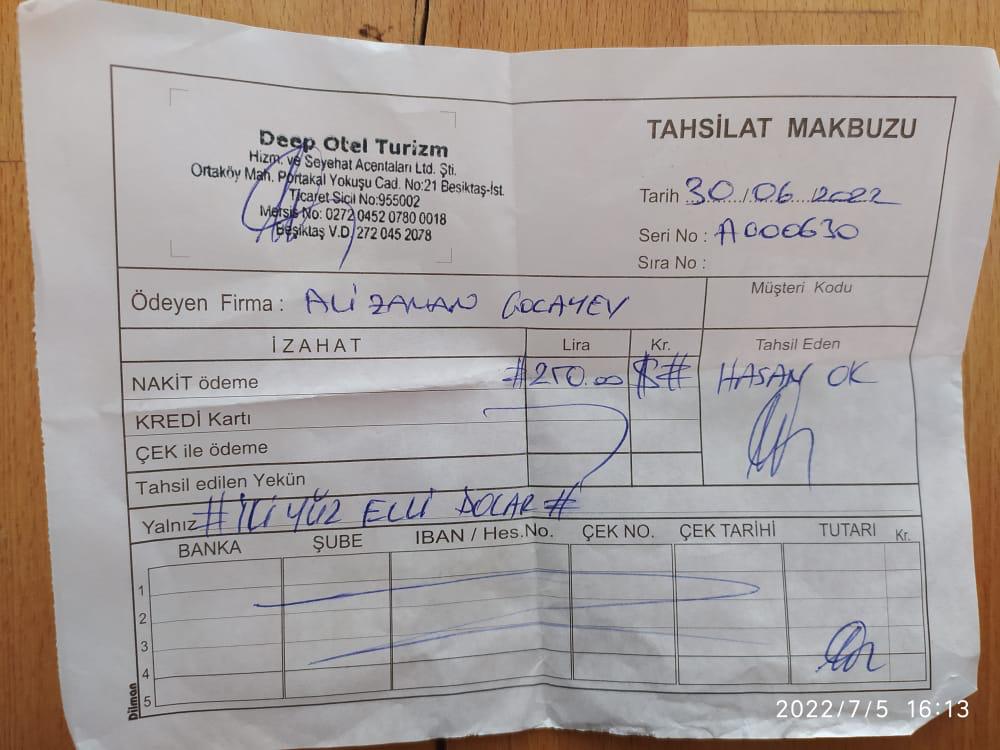 Deep Otel Turizm
Hizm. ve Seyehat Acentaları Ltd. Şti.
Ortaköy Mah. Portakal Yokuşu Cad. No:21 Besiktaş-İst.
Ticaret Sicil No:955002
Mersis No: 0272 0452 0780 0018
Beşiktaş V.D. 272 045 2078
TAHSİLAT MAKBUZU
Tarih 30/06/2022
Seri No : A000630
Sıra No :
Ödeyen Firma : ALİ ZAMAN GOCAYEV
Müşteri Kodu
İZAHAT Lira Kr. Tahsil Eden
NAKİT ödeme #250.00 $# HASAN OK
KREDİ Kartı
ÇEK ile ödeme
Tahsil edilen Yekün
Yalnız #İKİ YÜZ ELLİ DOLAR#
BANKA ŞUBE IBAN / Hes.No. ÇEK NO. ÇEK TARİHİ TUTARI Kr.
1
2
3
4
5
Dilman
2022/7/5 16:13